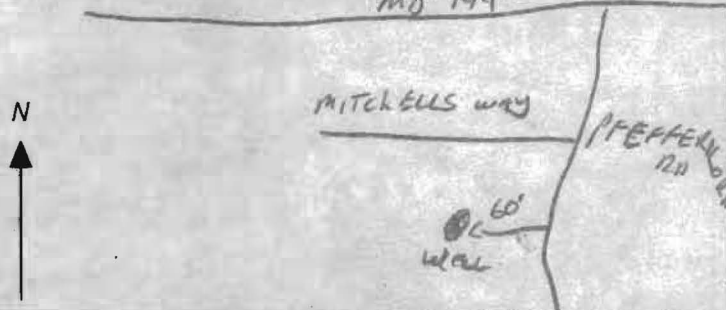 MD 144
N
MITCHELLS WAY
PFEFFERKORN
RD
60'
WELL